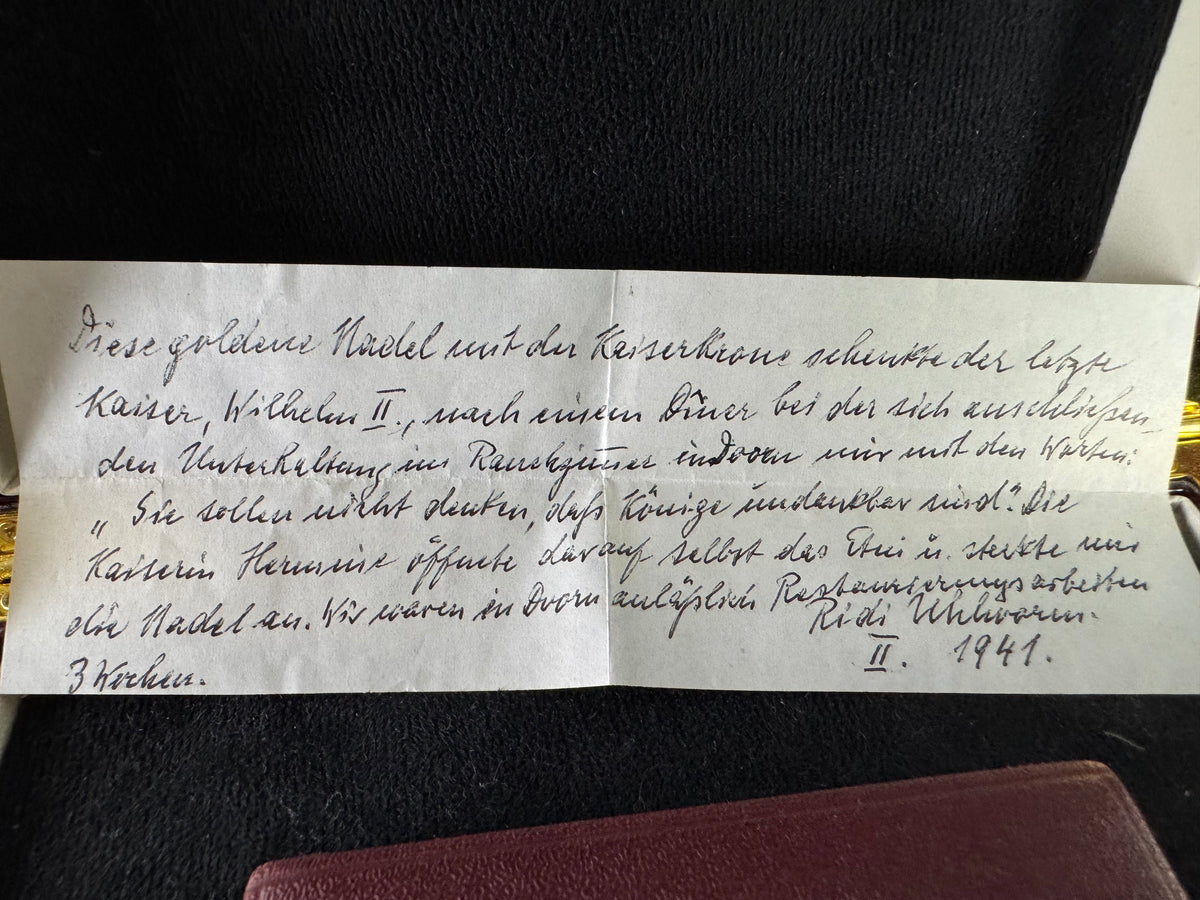 Diese goldene Nadel mit der Kaiserkrone schenkte der letzte
Kaiser, Wilhelm II., nach einem Diner bei der sich anschließen_
den Unterhaltung im Rauchzimmer in Doorn mir mit den Worten:
„Sie sollen nicht denken, daß Könige undankbar sind". Die
Kaiserin Hermine öffnete darauf selbst das Etui u. steckte mir
die Nadel an. Wir waren in Doorn anläßlich Restaurierungsarbeiten
3 Wochen.
Ridi
II. 1941.